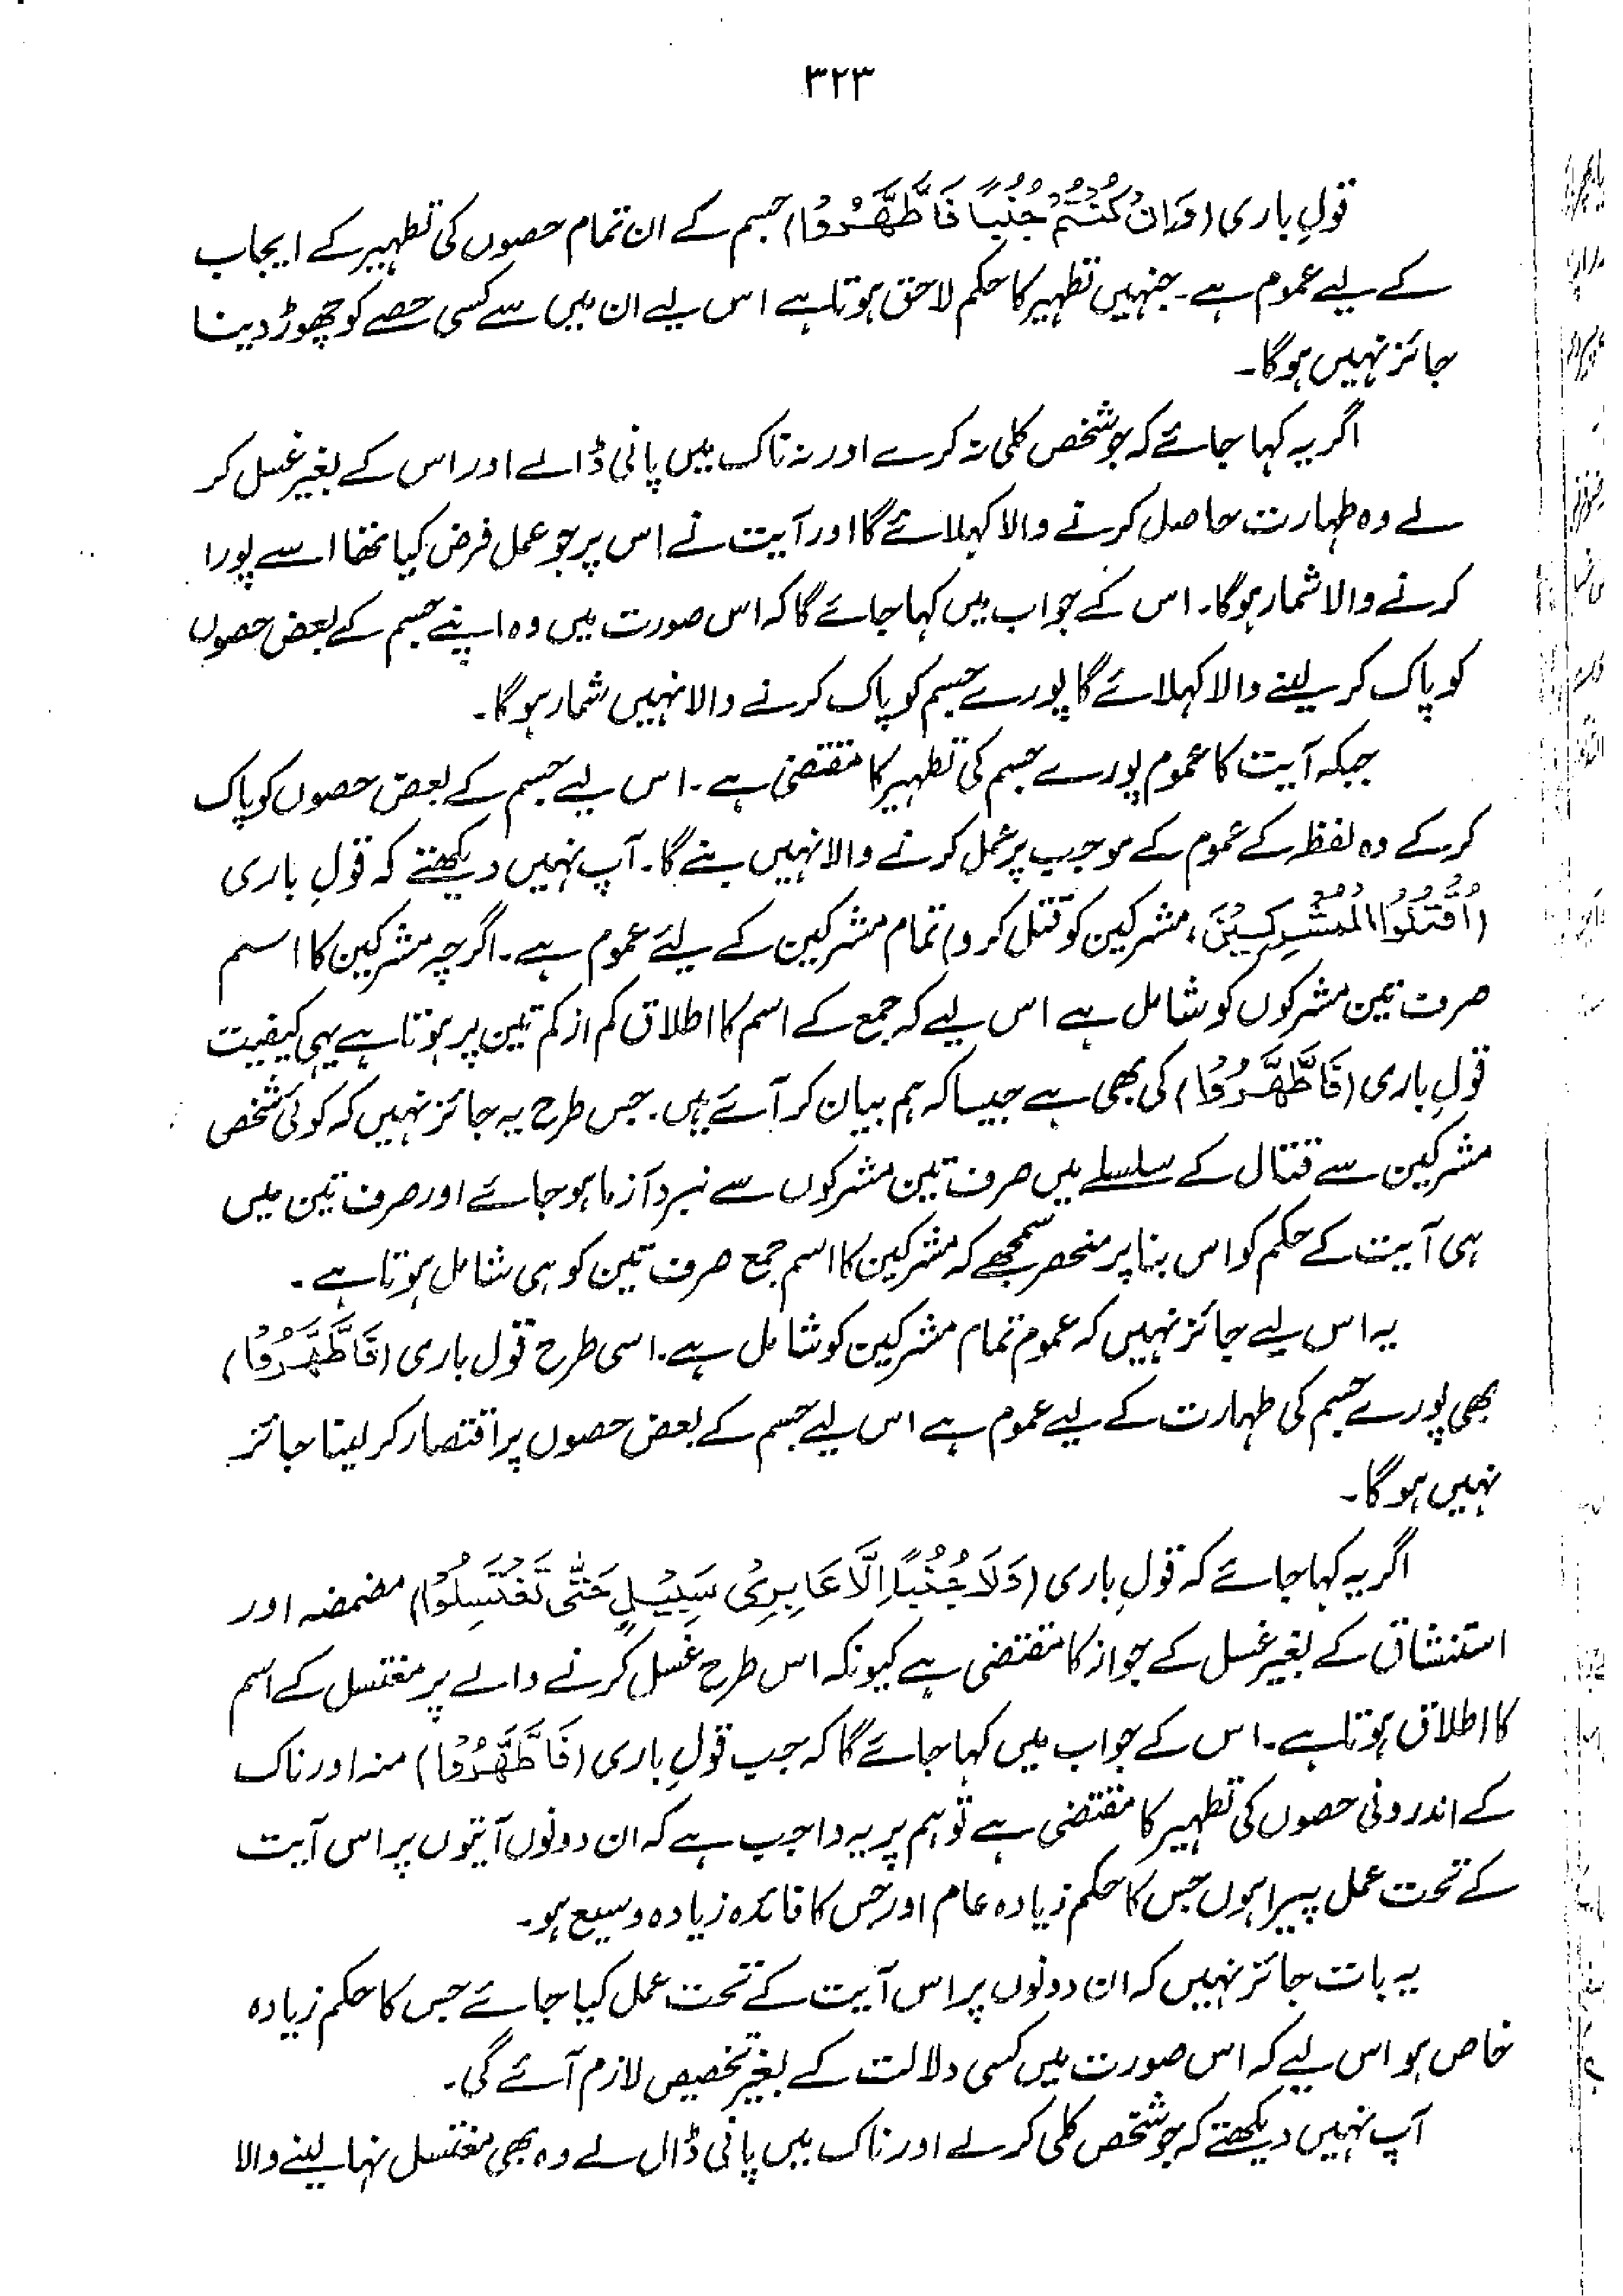 ۳۲۳
قولِ باری (وَاِنْ كُنْتُمْ جُنُبًا فَاطَّهَّرُوْا) جسم کے ان تمام حصوں کی تطہیر کے ایجاب
کے لیے عموم ہے۔ جنہیں تطہیر کا حکم لاحق ہوتا ہے اس لیے ان میں سے کسی حصے کو چھوڑ دینا
جائز نہیں ہوگا۔
اگر یہ کہا جائے کہ جو شخص کلی نہ کرے اور نہ ناک میں پانی ڈالے اور اس کے بغیر غسل کر
لے وہ طہارت حاصل کرنے والا کہلائے گا اور آیت نے اس پر جو عمل فرض کیا تھا اسے پورا
کرنے والا شمار ہوگا۔ اس کے جواب میں کہا جائے گا کہ اس صورت میں وہ اپنے جسم کے بعض حصوں
کو پاک کر لینے والا کہلائے گا پورے جسم کو پاک کرنے والا نہیں شمار ہوگا۔
جبکہ آیت کا عموم پورے جسم کی تطہیر کا مقتضی ہے۔ اس لیے جسم کے بعض حصوں کو پاک
کرکے وہ لفظ کے عموم کے موجب پر عمل کرنے والا نہیں بنے گا۔ آپ نہیں دیکھتے کہ قولِ باری
(اُقْتُلُوا الْمُشْرِكِيْنَ، مشرکین کو قتل کرو) تمام مشرکین کے لیے عموم ہے۔ اگرچہ مشرکین کا اسم
صرف تین مشرکوں کو شامل ہے اس لیے کہ جمع کے اسم کا اطلاق کم از کم تین پر ہوتا ہے یہی کیفیت
قولِ باری (فَاطَّهَّرُوْا) کی بھی ہے جیسا کہ ہم بیان کر آئے ہیں۔ جس طرح یہ جائز نہیں کہ کوئی شخص
مشرکین سے قتال کے سلسلے میں صرف تین مشرکوں سے نبرد آزما ہو جائے اور صرف تین میں
ہی آیت کے حکم کو اس بنا پر منحصر سمجھے کہ مشرکین کا اسم جمع صرف تین کو ہی شامل ہوتا ہے۔
یہ اس لیے جائز نہیں کہ عموم تمام مشرکین کو شامل ہے۔ اسی طرح قول باری (فَاطَّهَّرُوْا)
بھی پورے جسم کی طہارت کے لیے عموم ہے اس لیے جسم کے بعض حصوں پر اقتصار کر لینا جائز
نہیں ہوگا۔
اگر یہ کہا جائے کہ قولِ باری (وَلَا جُنُبًا اِلَّا عَابِرِيْ سَبِيْلٍ حَتّٰى تَغْتَسِلُوْا) مضمضہ اور
استنشاق کے بغیر غسل کے جواز کا مقتضی ہے کیونکہ اس طرح غسل کرنے والے پر مغتسل کے اسم
کا اطلاق ہوتا ہے۔ اس کے جواب میں کہا جائے گا کہ جب قولِ باری (فَاطَّهَّرُوْا) منہ اور ناک
کے اندرونی حصوں کی تطہیر کا مقتضی ہے تو ہم پر یہ واجب ہے کہ ان دونوں آیتوں پر اس آیت
کے تحت عمل پیرا ہوں جس کا حکم زیادہ عام اور جس کا فائدہ زیادہ وسیع ہو۔
یہ بات جائز نہیں کہ ان دونوں پر اس آیت کے تحت عمل کیا جائے جس کا حکم زیادہ
خاص ہو اس لیے کہ اس صورت میں کسی دلالت کے بغیر تخصیص لازم آئے گی۔
آپ نہیں دیکھتے کہ جو شخص کلی کرلے اور ناک میں پانی ڈال لے وہ بھی مغتسل نہا لینے والا